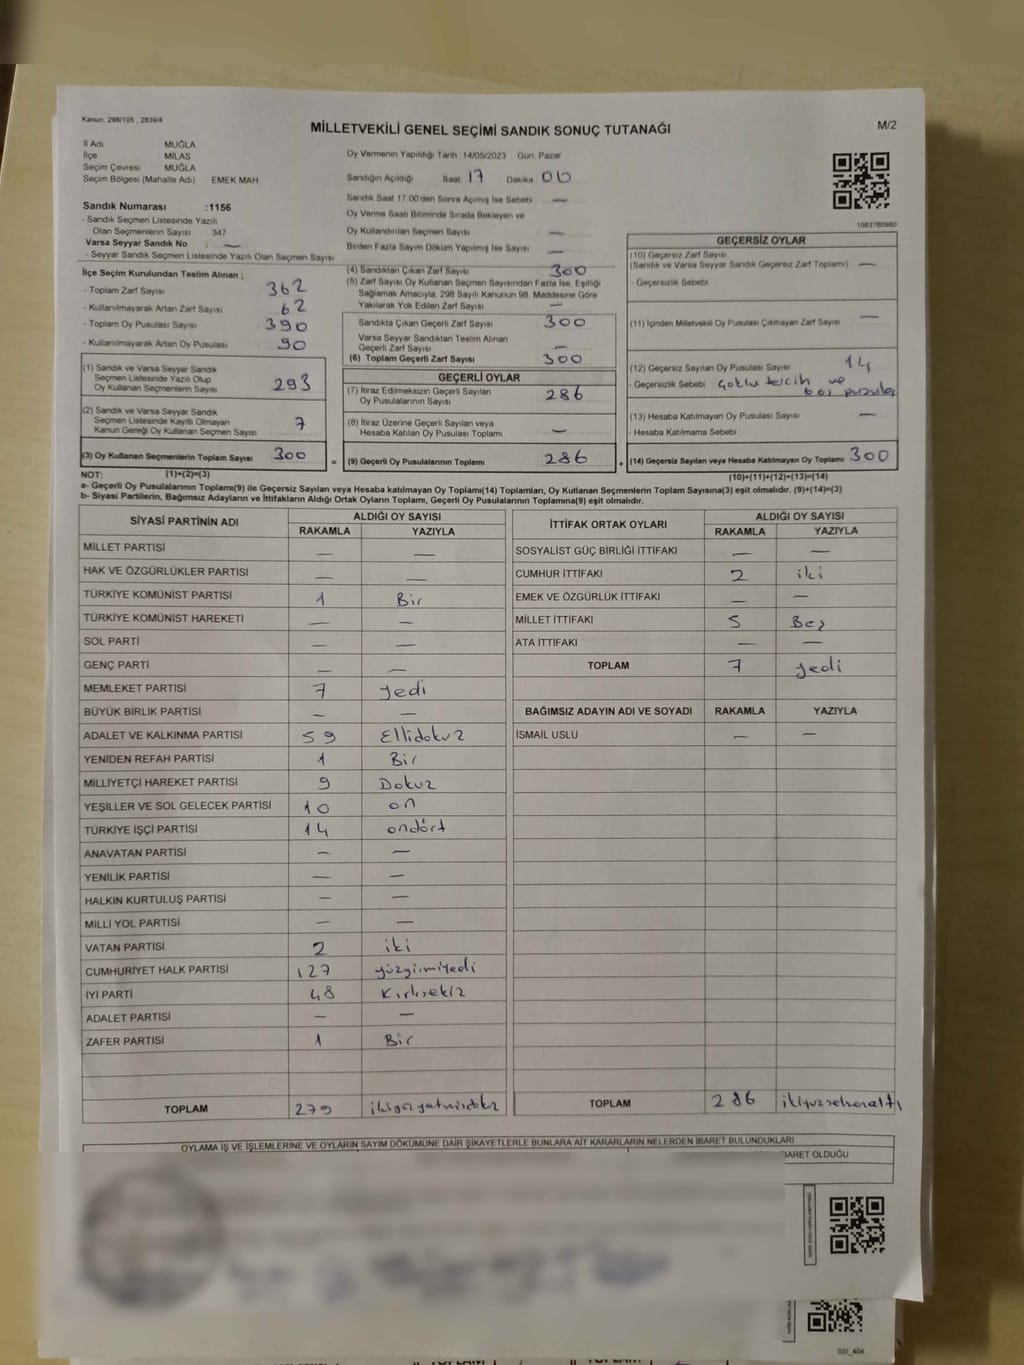 Kanun: 298/105 , 2839/4
MİLLETVEKİLİ GENEL SEÇİMİ SANDIK SONUÇ TUTANAĞI
M/2
İl Adı MUĞLA
İlçe MİLAS
Seçim Çevresi MUĞLA
Seçim Bölgesi (Mahalle Adı) EMEK MAH
Sandık Numarası :1156
- Sandık Seçmen Listesinde Yazılı
Olan Seçmenlerin Sayısı : 347
Varsa Seyyar Sandık No : —
- Seyyar Sandık Seçmen Listesinde Yazılı Olan Seçmen Sayısı
Oy Vermenin Yapıldığı Tarih 14/05/2023 Gün: Pazar
Sandığın Açıldığı Saat 17 Dakika 00
Sandık Saat 17:00'den Sonra Açılmış İse Sebebi —
Oy Verme Saati Bitiminde Sırada Bekleyen ve
Oy Kullandırılan Seçmen Sayısı —
Birden Fazla Sayım Döküm Yapılmış İse Sayısı —
1083760960
İlçe Seçim Kurulundan Teslim Alınan ;
- Toplam Zarf Sayısı 362
- Kullanılmayarak Artan Zarf Sayısı 62
- Toplam Oy Pusulası Sayısı 390
- Kullanılmayarak Artan Oy Pusulası 90
(1) Sandık ve Varsa Seyyar Sandık
Seçmen Listesinde Yazılı Olup
Oy Kullanan Seçmenlerin Sayısı 293
(2) Sandık ve Varsa Seyyar Sandık
Seçmen Listesinde Kayıtlı Olmayan
Kanun Gereği Oy Kullanan Seçmen Sayısı 7
(3) Oy Kullanan Seçmenlerin Toplam Sayısı 300
(4) Sandıktan Çıkan Zarf Sayısı 300
(5) Zarf Sayısı Oy Kullanan Seçmen Sayısından Fazla İse, Eşitliği
Sağlamak Amacıyla, 298 Sayılı Kanunun 98. Maddesine Göre
Yakılarak Yok Edilen Zarf Sayısı —
Sandıkta Çıkan Geçerli Zarf Sayısı 300
Varsa Seyyar Sandıktan Teslim Alınan
Geçerli Zarf Sayısı —
(6) Toplam Geçerli Zarf Sayısı 300
GEÇERLİ OYLAR
(7) İtiraz Edilmeksizin Geçerli Sayılan
Oy Pusulalarının Sayısı 286
(8) İtiraz Üzerine Geçerli Sayılan veya
Hesaba Katılan Oy Pusulası Toplamı —
= (9) Geçerli Oy Pusulalarının Toplamı 286 +
GEÇERSİZ OYLAR
(10) Geçersiz Zarf Sayısı
(Sandık ve Varsa Seyyar Sandık Geçersiz Zarf Toplamı) —
- Geçersizlik Sebebi
(11) İçinden Milletvekili Oy Pusulası Çıkmayan Zarf Sayısı —
(12) Geçersiz Sayılan Oy Pusulası Sayısı 14
- Geçersizlik Sebebi Çoklu tercih ve
boş pusula
(13) Hesaba Katılmayan Oy Pusulası Sayısı —
- Hesaba Katılmama Sebebi
(14) Geçersiz Sayılan veya Hesaba Katılmayan Oy Toplamı 300
NOT: (1)+(2)=(3) (10)+(11)+(12)+(13)=(14)
a- Geçerli Oy Pusulalarının Toplamı(9) ile Geçersiz Sayılan veya Hesaba katılmayan Oy Toplamı(14) Toplamları, Oy Kullanan Seçmenlerin Toplam Sayısına(3) eşit olmalıdır. (9)+(14)=(3)
b- Siyasi Partilerin, Bağımsız Adayların ve İttifakların Aldığı Ortak Oyların Toplamı, Geçerli Oy Pusulalarının Toplamına(9) eşit olmalıdır.
SİYASİ PARTİNİN ADI ALDIĞI OY SAYISI
RAKAMLA YAZIYLA
MİLLET PARTİSİ — —
HAK VE ÖZGÜRLÜKLER PARTİSİ — —
TÜRKİYE KOMÜNİST PARTİSİ 1 Bir
TÜRKİYE KOMÜNİST HAREKETİ — —
SOL PARTİ — —
GENÇ PARTİ — —
MEMLEKET PARTİSİ 7 yedi
BÜYÜK BİRLİK PARTİSİ — —
ADALET VE KALKINMA PARTİSİ 59 Ellidokuz
YENİDEN REFAH PARTİSİ 1 Bir
MİLLİYETÇİ HAREKET PARTİSİ 9 Dokuz
YEŞİLLER VE SOL GELECEK PARTİSİ 10 on
TÜRKİYE İŞÇİ PARTİSİ 14 ondört
ANAVATAN PARTİSİ — —
YENİLİK PARTİSİ — —
HALKIN KURTULUŞ PARTİSİ — —
MİLLİ YOL PARTİSİ — —
VATAN PARTİSİ 2 iki
CUMHURİYET HALK PARTİSİ 127 yüzyirmiyedi
İYİ PARTİ 48 Kırksekiz
ADALET PARTİSİ — —
ZAFER PARTİSİ 1 Bir
TOPLAM 279 ikiyüzyetmişdokuz
İTTİFAK ORTAK OYLARI ALDIĞI OY SAYISI
RAKAMLA YAZIYLA
SOSYALİST GÜÇ BİRLİĞİ İTTİFAKI — —
CUMHUR İTTİFAKI 2 iki
EMEK VE ÖZGÜRLÜK İTTİFAKI — —
MİLLET İTTİFAKI 5 Beş
ATA İTTİFAKI — —
TOPLAM 7 yedi
BAĞIMSIZ ADAYIN ADI VE SOYADI RAKAMLA YAZIYLA
İSMAİL USLU — —
TOPLAM 286 ikiyüzseksenaltı
OYLAMA İŞ VE İŞLEMLERİNE VE OYLARIN SAYIM DÖKÜMÜNE DAİR ŞİKAYETLERLE BUNLARA AİT KARARLARIN NELERDEN İBARET BULUNDUKLARI
BARET OLDUĞU
SSI_404